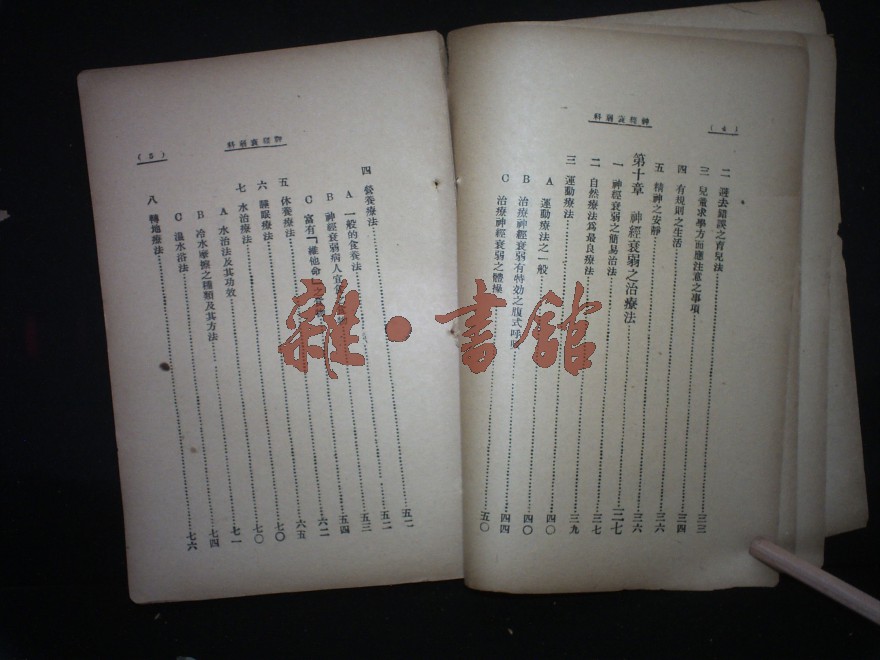 (4)
神經衰弱科
二 過去錯誤之育兒法 三三
三 兒童求學方面應注意之事項 三四
四 有規則之生活 三六
五 精神之安靜 三六
第十章 神經衰弱之治療法 三七
一 神經衰弱之簡易治法 三七
二 自然療法爲最良療法 三九
三 運動療法 四〇
A 運動療法之一般 四〇
B 治療神經衰弱有特効之腹式呼吸 四四
C 治療神經衰弱之體操 五〇
神經衰弱科
(5)
四 營養療法 五一
A 一般的食養法 五二
B 神經衰弱病人宜 五三
C 富有「維他命」之 五四
五 休養療法 六二
六 睡眠療法 六五
七 水治療法 七〇
A 水治法及其功效 七〇
B 冷水摩擦之種類及其方法 七一
C 溫水浴法 七四
八 轉地療法 七六
雜·書館